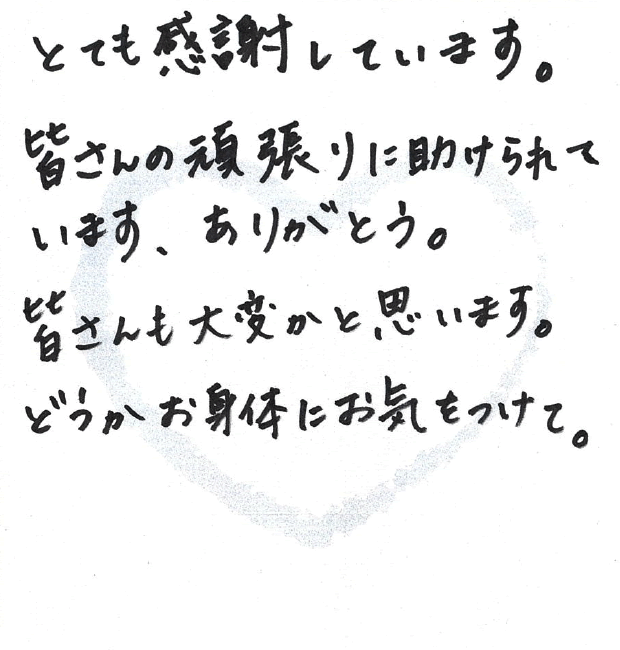 とても感謝しています。
皆さんの頑張りに助けられて
います、ありがとう。
皆さんも大変かと思います。
どうかお身体にお気をつけて。